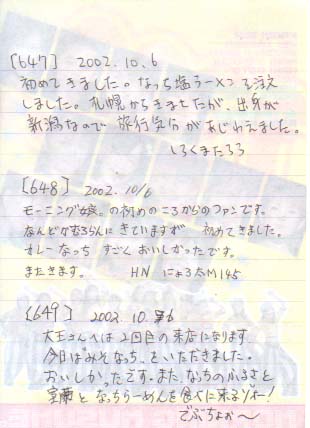 [647] 2002.10.6
初めてきました。なっち塩ラーメンを注文
しました。札幌からきましたが、出身が
新潟なので旅行気分があじわえました。
しろくまたろう
[648] 2002.10/6
モーニング娘。の初めのころからのファンです。
なんどかむろらんにきていますが 初めてきました。
カレーなっち すごくおいしかったです。
またきます。 HN にょろ太M145
[649] 2002.10.6
大王さんへは2回目の来店になります
今日はみそなっち、をいただきました。
おいしかったです。また、なっちのふるさと
室蘭となっちらーめんを食べに来るゾォー!
でぶちょお〜